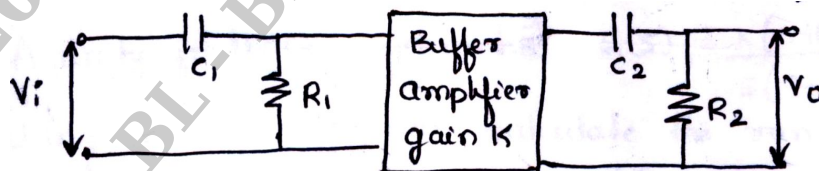 C₁
R₁
Vi
Buffer
amplifier
gain K
C₂
R₂
Vo
BL-